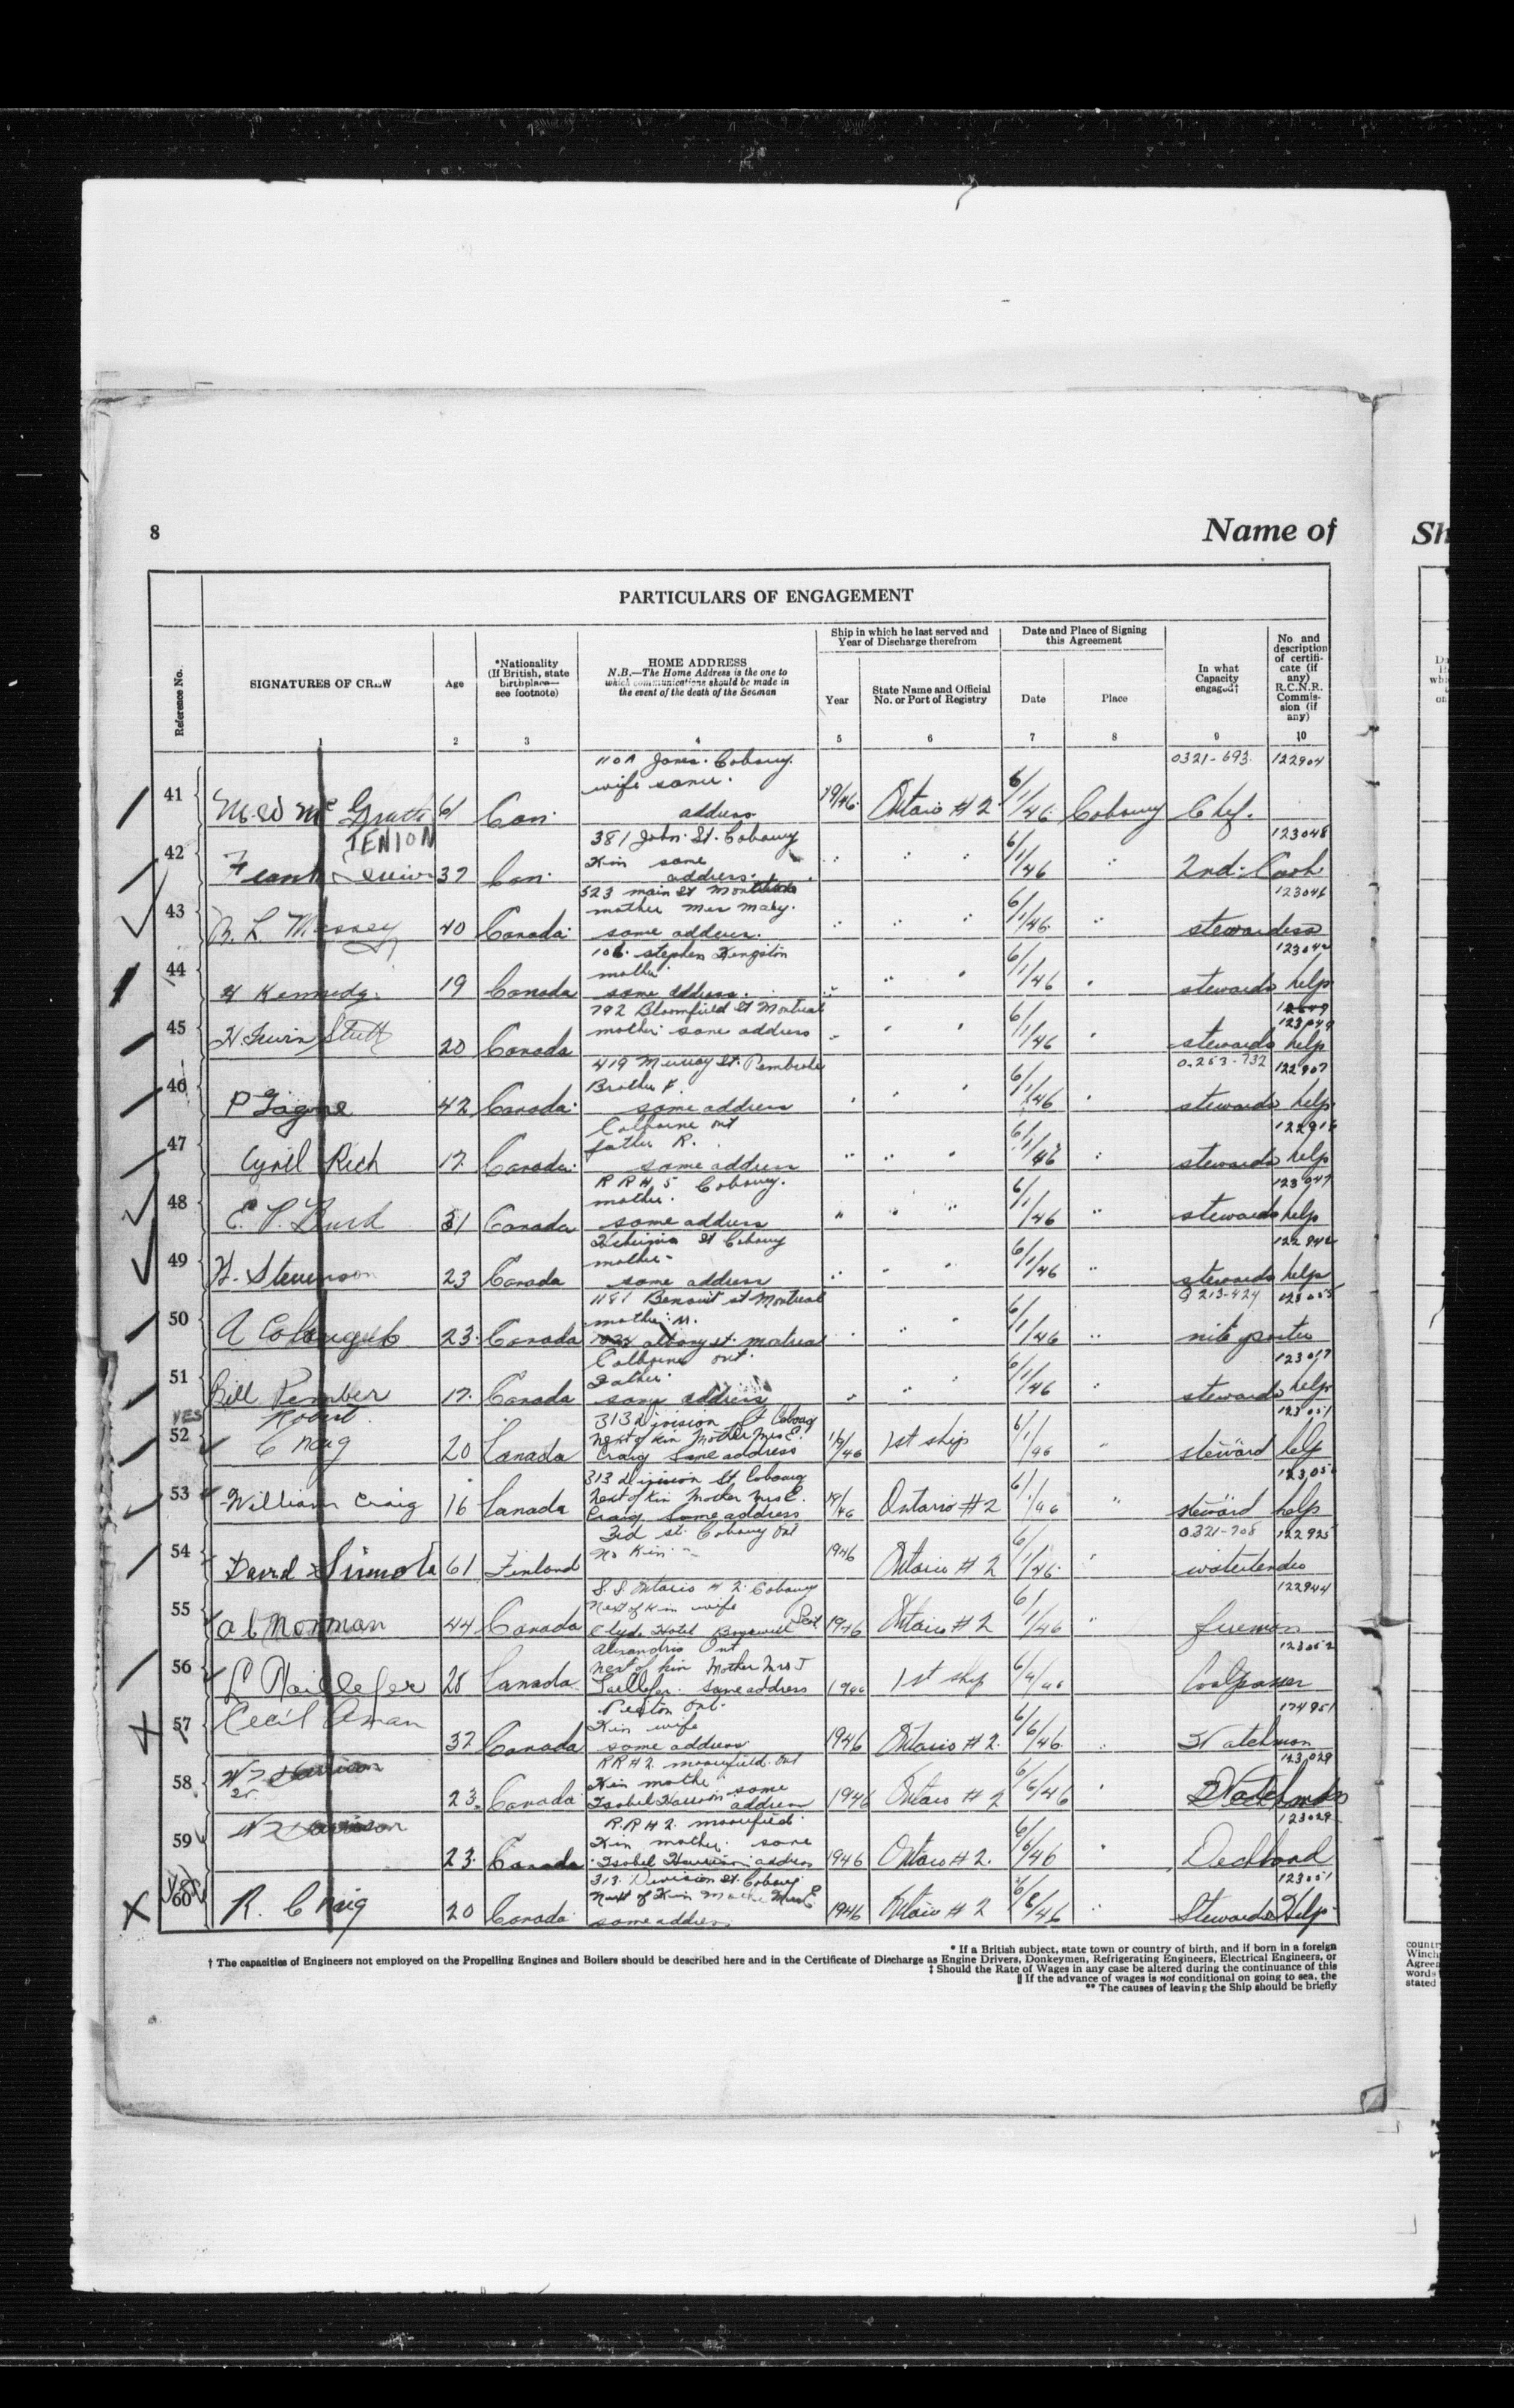 8
Name of
Sh
PARTICULARS OF ENGAGEMENT
Reference No.
SIGNATURES OF CREW
Age
*Nationality
(If British, state
birthplace—
see footnote)
HOME ADDRESS
N.B.—The Home Address is the one to
which communications should be made in
the event of the death of the Seaman
Ship in which he last served and
Year of Discharge therefrom
Year
State Name and Official
No. or Port of Registry
Date and Place of Signing
this Agreement
Date
Place
In what
Capacity
engaged†
No and
description
of certifi-
cate (if
any)
R.C.N.R.
Commis-
sion (if
any)
1 2 3 4 5 6 7 8 9 10
110A James. Cobourg. 0321-693 122904
wife same.
41 Mc Grath 61 Can. address 19/46 Ontario #2 6/1/46 Cobourg Chef.
TENION 381 John St. Cobourg 123048
Kin same
42 Frank 37 Can. address. " " " 6/1/46 " 2nd Cook
323 main St 123046
mother Mrs Mary.
43 L Massey 40 Canada same address. " " " 6/1/46 " stewardess
106 stephen Kingston
mother
44 H Kennedy. 19 Canada same address. " " " 6/1/46 " stewards help
792 Bloomfield St Montreal
mother same address 123049
45 H. Irwin Stutt 20 Canada " " " 6/1/46 " stewards help
419 Murray St. Pembroke 0.263-732 122907
Brother F.
46 P Gagne 42 Canada same address " " " 6/1/46 " stewards help
Colborne Ont
father R.
47 Cyril Rich 17 Canada same address " " " 6/1/46 " stewards help
R R # 5 Cobourg. 123047
mother.
48 E. P. 31 Canada same address " " " 6/1/46 " stewards help
St Cobourg
mother
49 H. Stevenson 23 Canada same address " " " 6/1/46 " stewards help
1181 Benoit st Montreal 0 213-424
mother: M.
50 A 23 Canada albany st. montreal " " " 6/1/46 " nite porter
Colborne Ont. 123017
Father
51 Bill Pember 17 Canada same address " " " 6/1/46 " stewards help
YES Robert 313 Division St Cobourg 123051
next of kin Mother Mrs E.
52 Craig 20 Canada Craig same address 19/46 1st ship 6/1/46 " steward help
313 Division St Cobourg
next of kin Mother Mrs E.
53 William Craig 16 Canada Craig same address 19/46 Ontario #2 6/1/46 " steward help
3rd st. Cobourg Ont 0321-708 122925
No Kin
54 David 61 Finland 1946 Ontario #2 6/1/46 " watertender
S.S. Ontario #2 Cobourg 122944
Next of Kin wife
55 A C Morman 44 Canada Clyde Hotel 1946 Ontario #2 6/1/46 " fireman
Alexandria Ont 123052
next of kin Mother Mrs J
56 28 Canada same address 1946 1st ship Coalpasser
Ont. 174951
Kin wife
57 Cecil Aman 32 Canada same address 1946 Ontario #2 6/6/46 " Watchman
RR#2. moorefield Ont 123029
Kin mother
58 23 Canada Isobel Harrison same address 1946 Ontario #2 6/6/46 "
R.R #2. moorefield 123029
Kin mother. same
59 23 Canada Isobel Harrison address 1946 Ontario #2. 6/6/46 " Deckhand
YES 313 Division St. Cobourg 123051
Next of Kin Mother Mrs E
60 R. Craig 20 Canada same address 1946 Ontario #2 6/6/46 " Stewards Help
* If a British subject, state town or country of birth, and if born in a foreign
† The capacities of Engineers not employed on the Propelling Engines and Boilers should be described here and in the Certificate of Discharge as Engine Drivers, Donkeymen, Refrigerating Engineers, Electrical Engineers, or
‡ Should the Rate of Wages in any case be altered during the continuance of this
‖ If the advance of wages is not conditional on going to sea, the
** The causes of leaving the Ship should be briefly
country
Winch
Agreem
words
stated